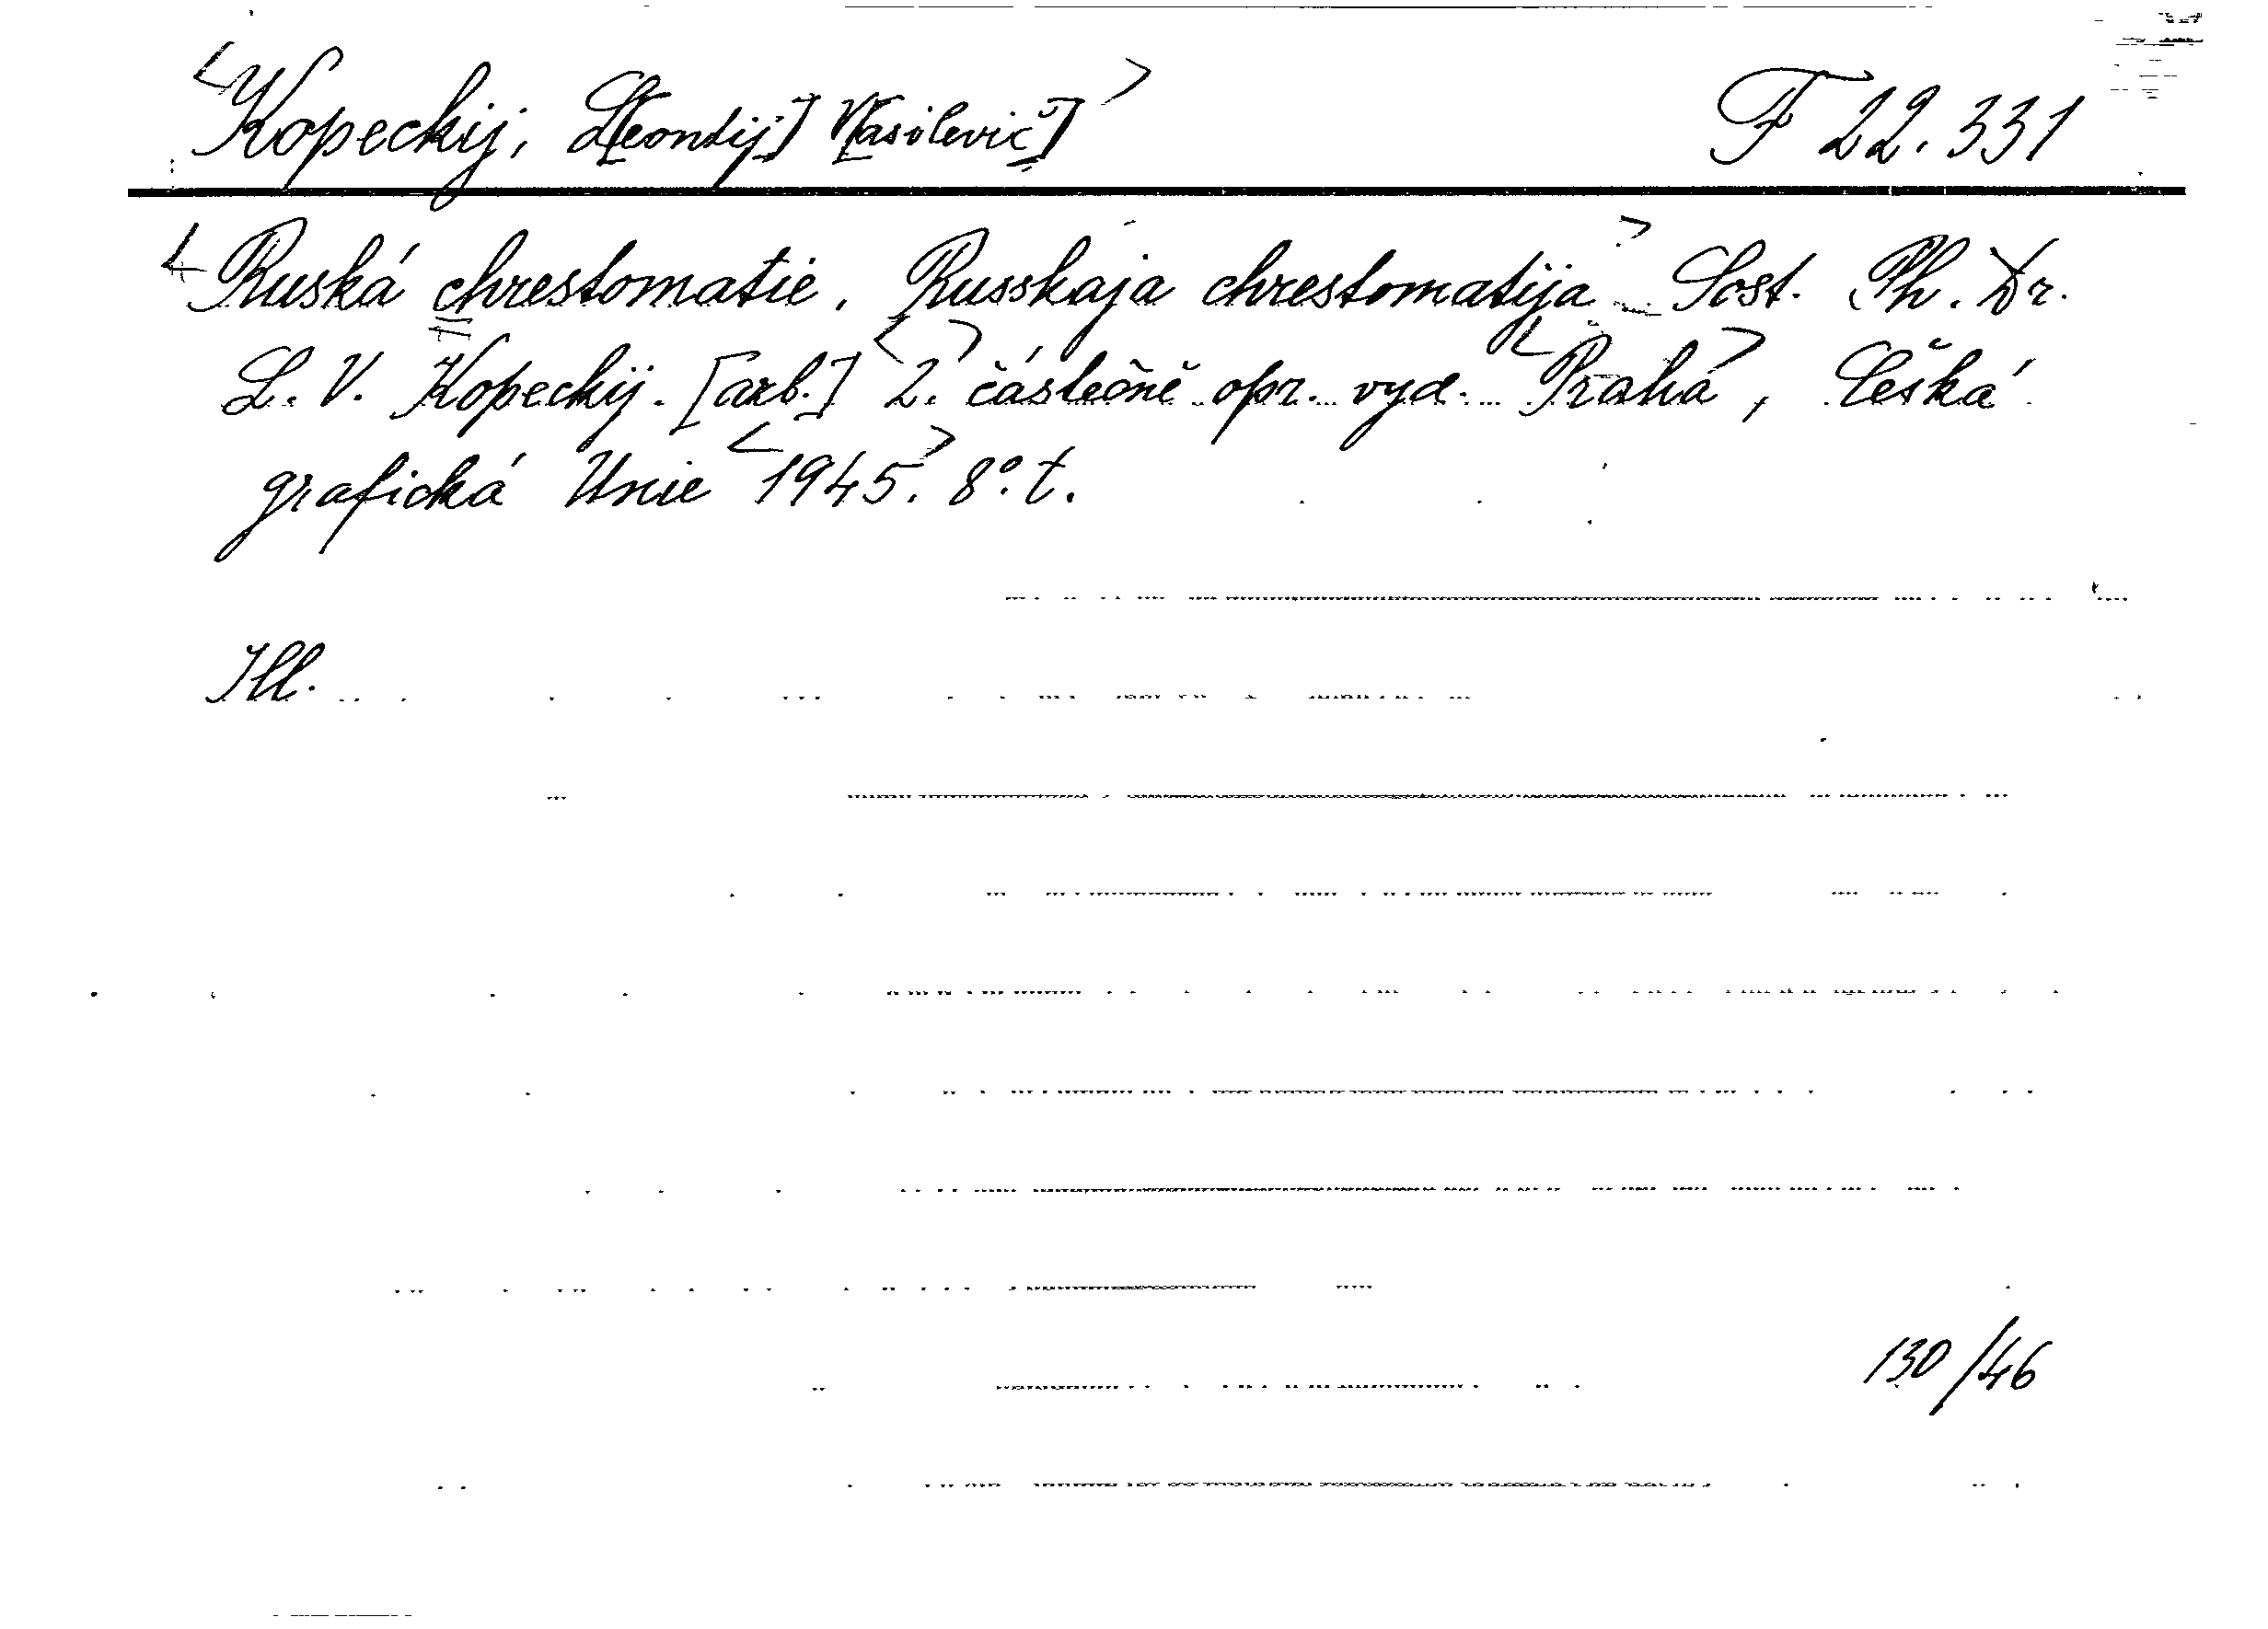 <Kopeckij, L[eontij] V[asilevič]> F 22.331
<Ruská chrestomatie. Russkaja chrestomatija> Sost. Ph. Dr.
L. V. Kopeckij. [azb.] <2.> částečně opr. vyd. <Praha>, Česká
grafická Unie <1945.> 8°. t.
Ill.
130/46